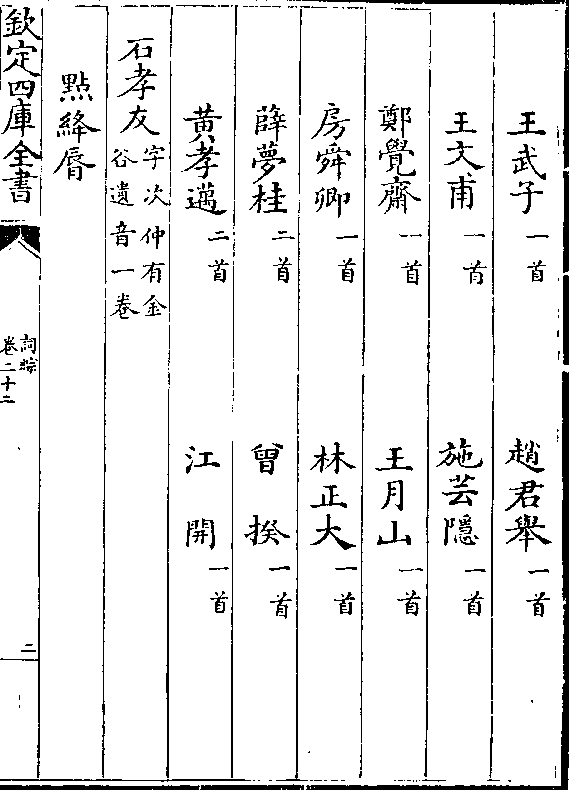 王武子一首　趙君舉一首
王文甫一首　施芸隱一首
鄭覺齋一首　王月山一首
房舜卿一首　林正大一首
薛夢桂二首　曾揆一首
黄孝邁二首　江開一首
石孝友字次仲有金谷遺音一卷
點絳唇
欽定四庫全書
詞綜
卷二十二
二